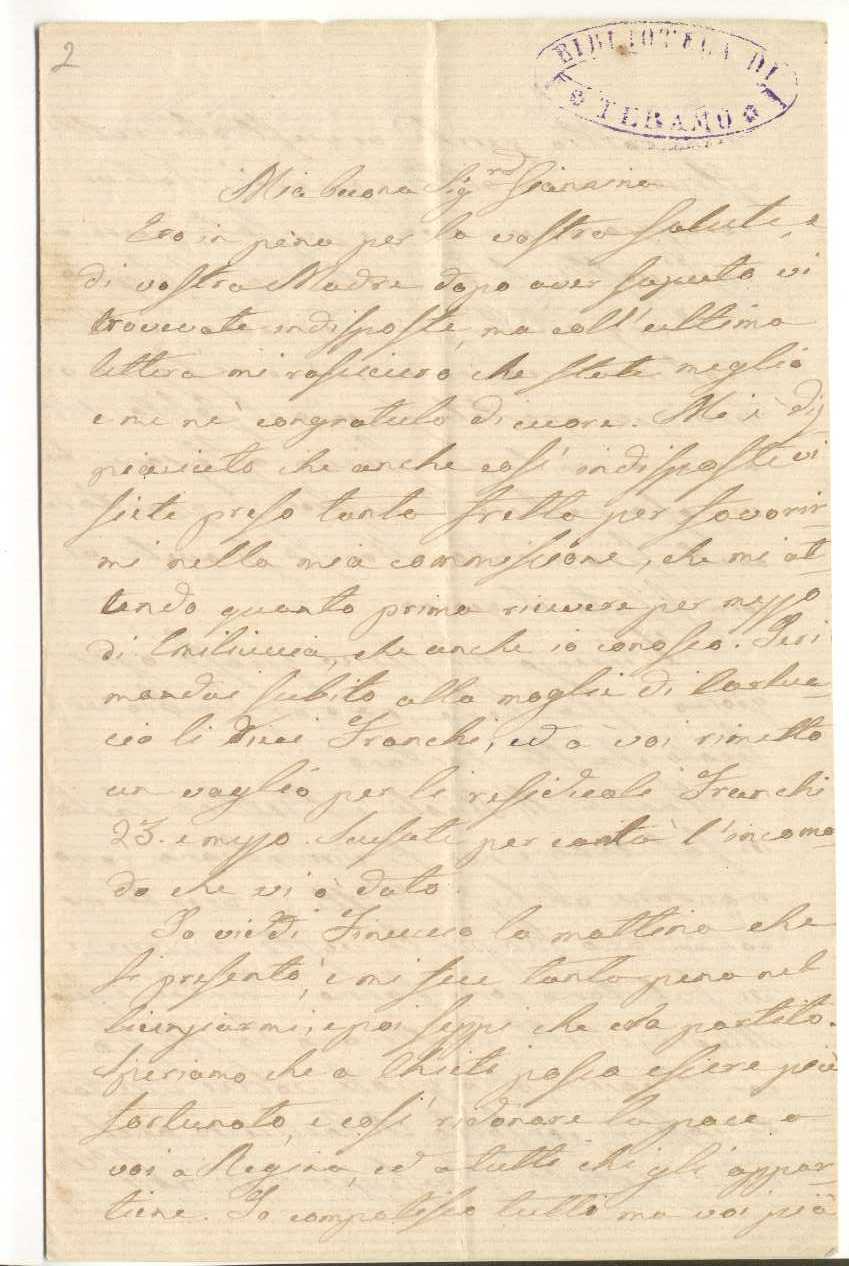 2
BIBLIOTECA DI
TERAMO
Mia buona Sig.ra Giannina
Ero in pena per la vostra salute, e
di vostra Madre dopo aver saputo vi
trovavate indisposte, ma coll'ultima
lettera mi rasicuro che state meglio
e me nè congratulo di cuore. Mi è dis
piaciuto che anche così indisposte vi
siete preso tanta fretta per favorir-
mi nella mia commissione, che mi at
tendo quanto prima ricevere per mezzo
di Emiliuccia, che anche io conosco. Ieri
mandai subito alla moglie di Carluc
cio li dieci Franchi, ed a voi rimetto
un vaglio per li residuali Franchi
23. e mezzo. Scusate per carità l'incomo-
do che vi ò dato.
Io viddi Finuccio la mattina che
si presentò, e mi fece tanta pena nel
licenziarmi, e poi seppi che era partito.
Speriamo che a Chieti possa essere più
fortunato, e così ridonare la pace a
voi a Regina, ed a tutti chi gli appar-
tiene. Io compatisco tutti ma voi più